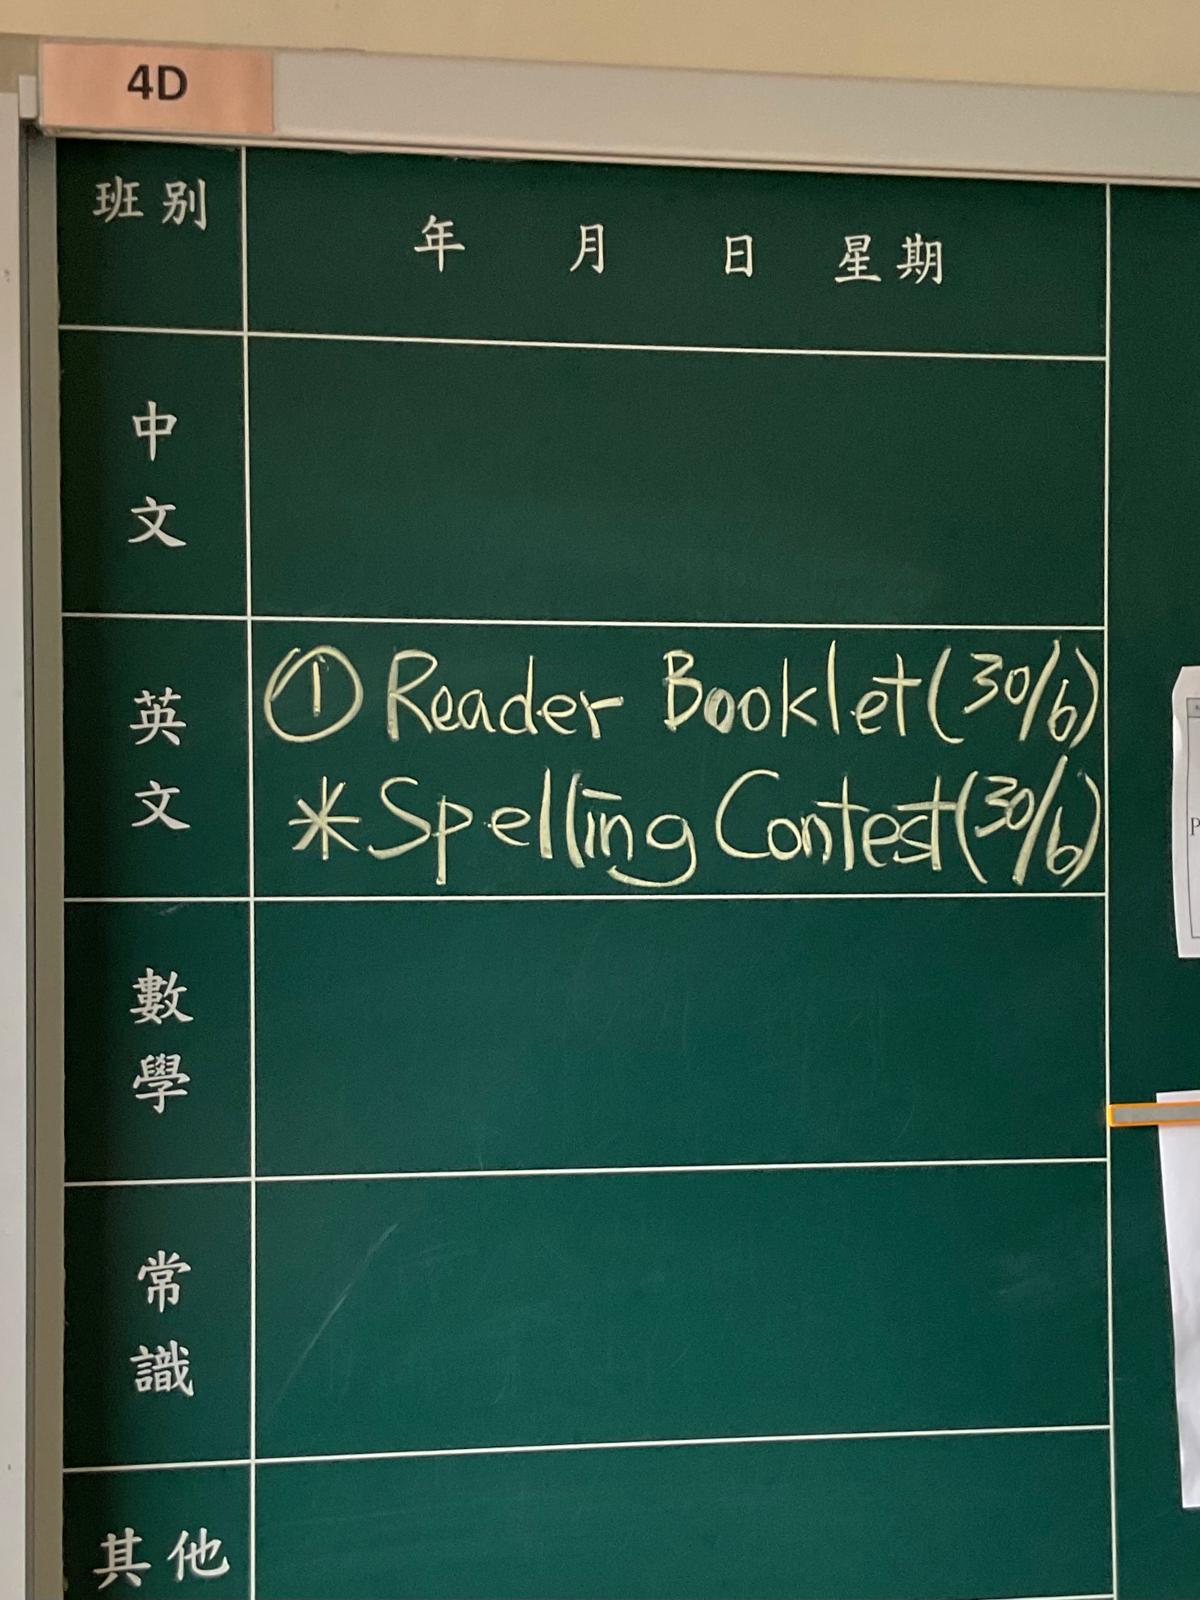 4D
班別
年 月 日 星期
中文
英文
① Reader Booklet (30/6)
* Spelling Contest (30/6)
數學
常識
其他